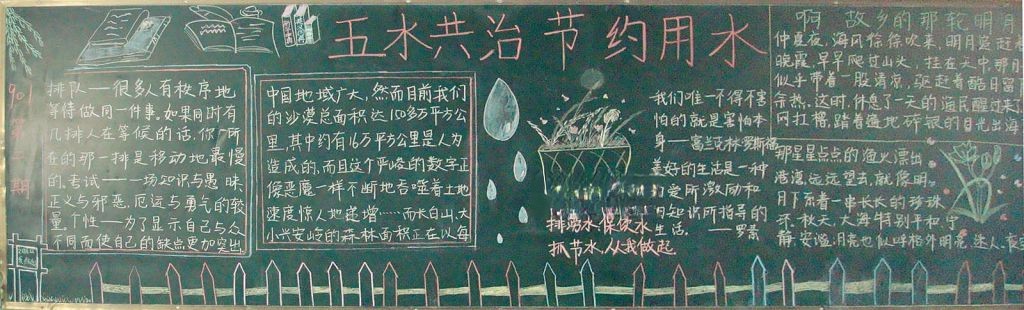 五水共治 节约用水
901第一期
排队——很多人有秩序地
等待做同一件事.如果同时有
几排人在等候的话,你所
在的那一排是移动地最慢
的.考试——一场知识与愚昧
正义与邪恶,厄运与勇气的较
量.个性——为了显示自己与众
不同而使自己的缺点更加突出
中国地域广大,然而目前我们
的沙漠总面积达150多万平方公
里,其中约有16万平方公里是人为
造成的,而且这个严峻的数字正
像恶魔一样不断地吞噬着土地
速度惊人地递增……而长白山,大
小兴安岭的森林面积正在以每
排涝水、保供水
抓节水,从我做起
我们唯一不得不害
怕的就是害怕本
身——富兰克林·罗斯福
美好的生活是一种
为爱所激励和
为知识所指导的
生活. ——罗素
啊 故乡的那轮明月
仲夏夜,海风徐徐吹来,明月追赶着
晚霞,早早爬过山头,挂在天中,那日
似乎带着一股清凉,驱赶着酷日留
余热,这时,休息了一天的渔民醒过来了
网扛桶,踏着遍地碎银的月光出海
那星星点点的渔火漂出
港湾远远望去,就像明
月下系着一串长长的珍珠
环.秋天,大海特别平和,宁
静,安谧,月亮也似乎格外明亮,迷人